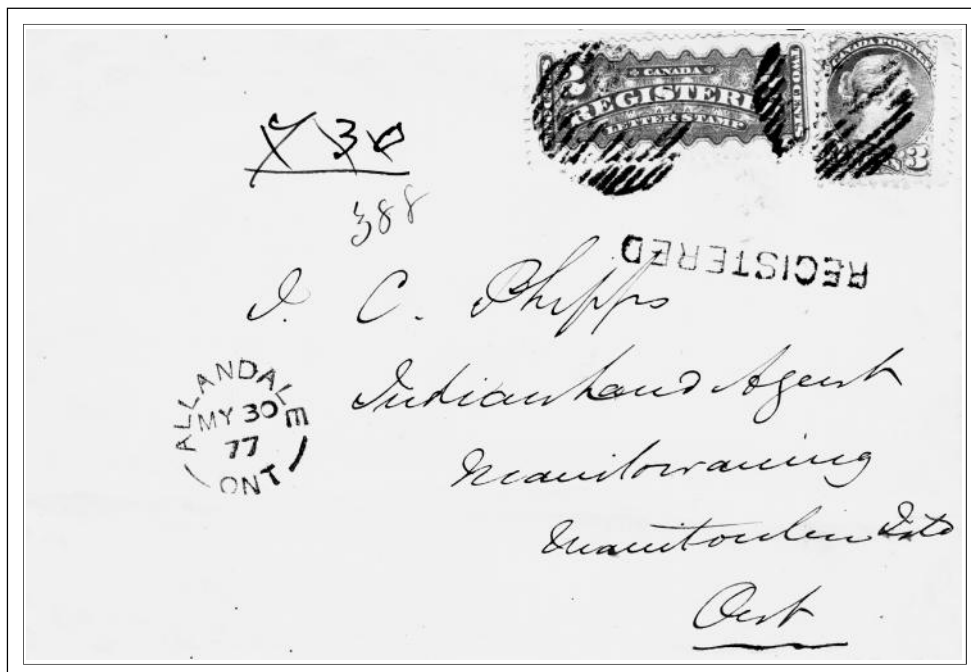 CANADA
REGISTERED
LETTER STAMP
2 TWO CENTS
CANADA POSTAGE
3
30
388
REGISTERED
J. C. Phipps
Indian Land Agent
Manitowaning
Manitoulin Isld
Ont
ALLANDALE
MY 30
77
ONT